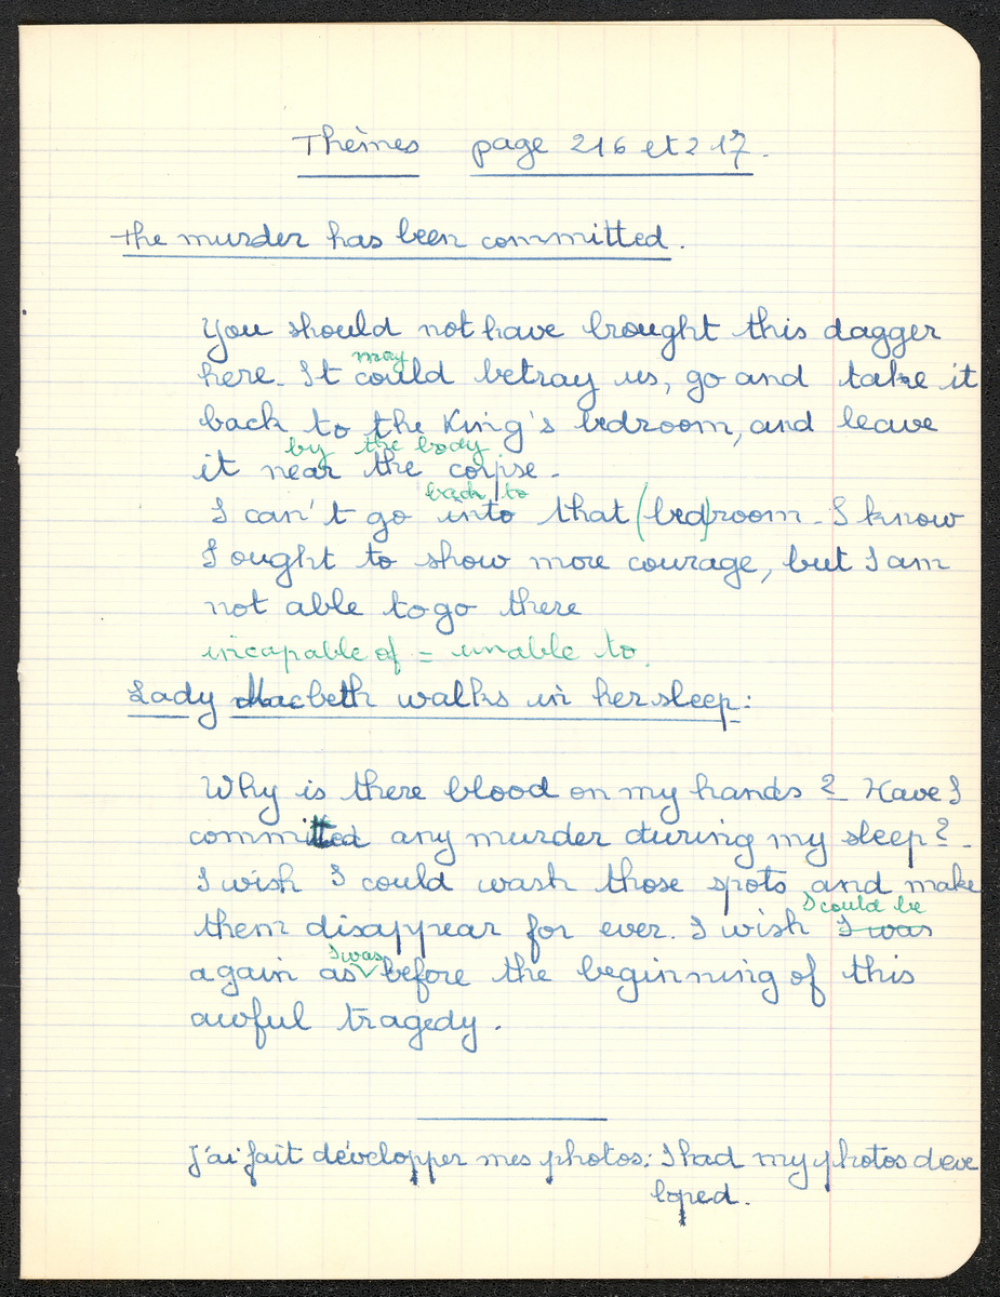 Thèmes page 216 et 217.
The murder has been committed.
You should not have brought this dagger
may
here. It could betray us, go and take it
back to the King's bedroom, and leave
by the body
it near the corpse.
back to
I can't go into that (bed)room. I know
I ought to show more courage, but I am
not able to go there
incapable of = unable to.
Lady Macbeth walks in her sleep:
Why is there blood on my hands ? Have I
committed any murder during my sleep?.
I wish I could wash those spots and make
I could be
them disappear for ever. I wish I was
I was
again as before the beginning of this
awful tragedy.
J'ai fait développer mes photos: I had my photos deve
loped.